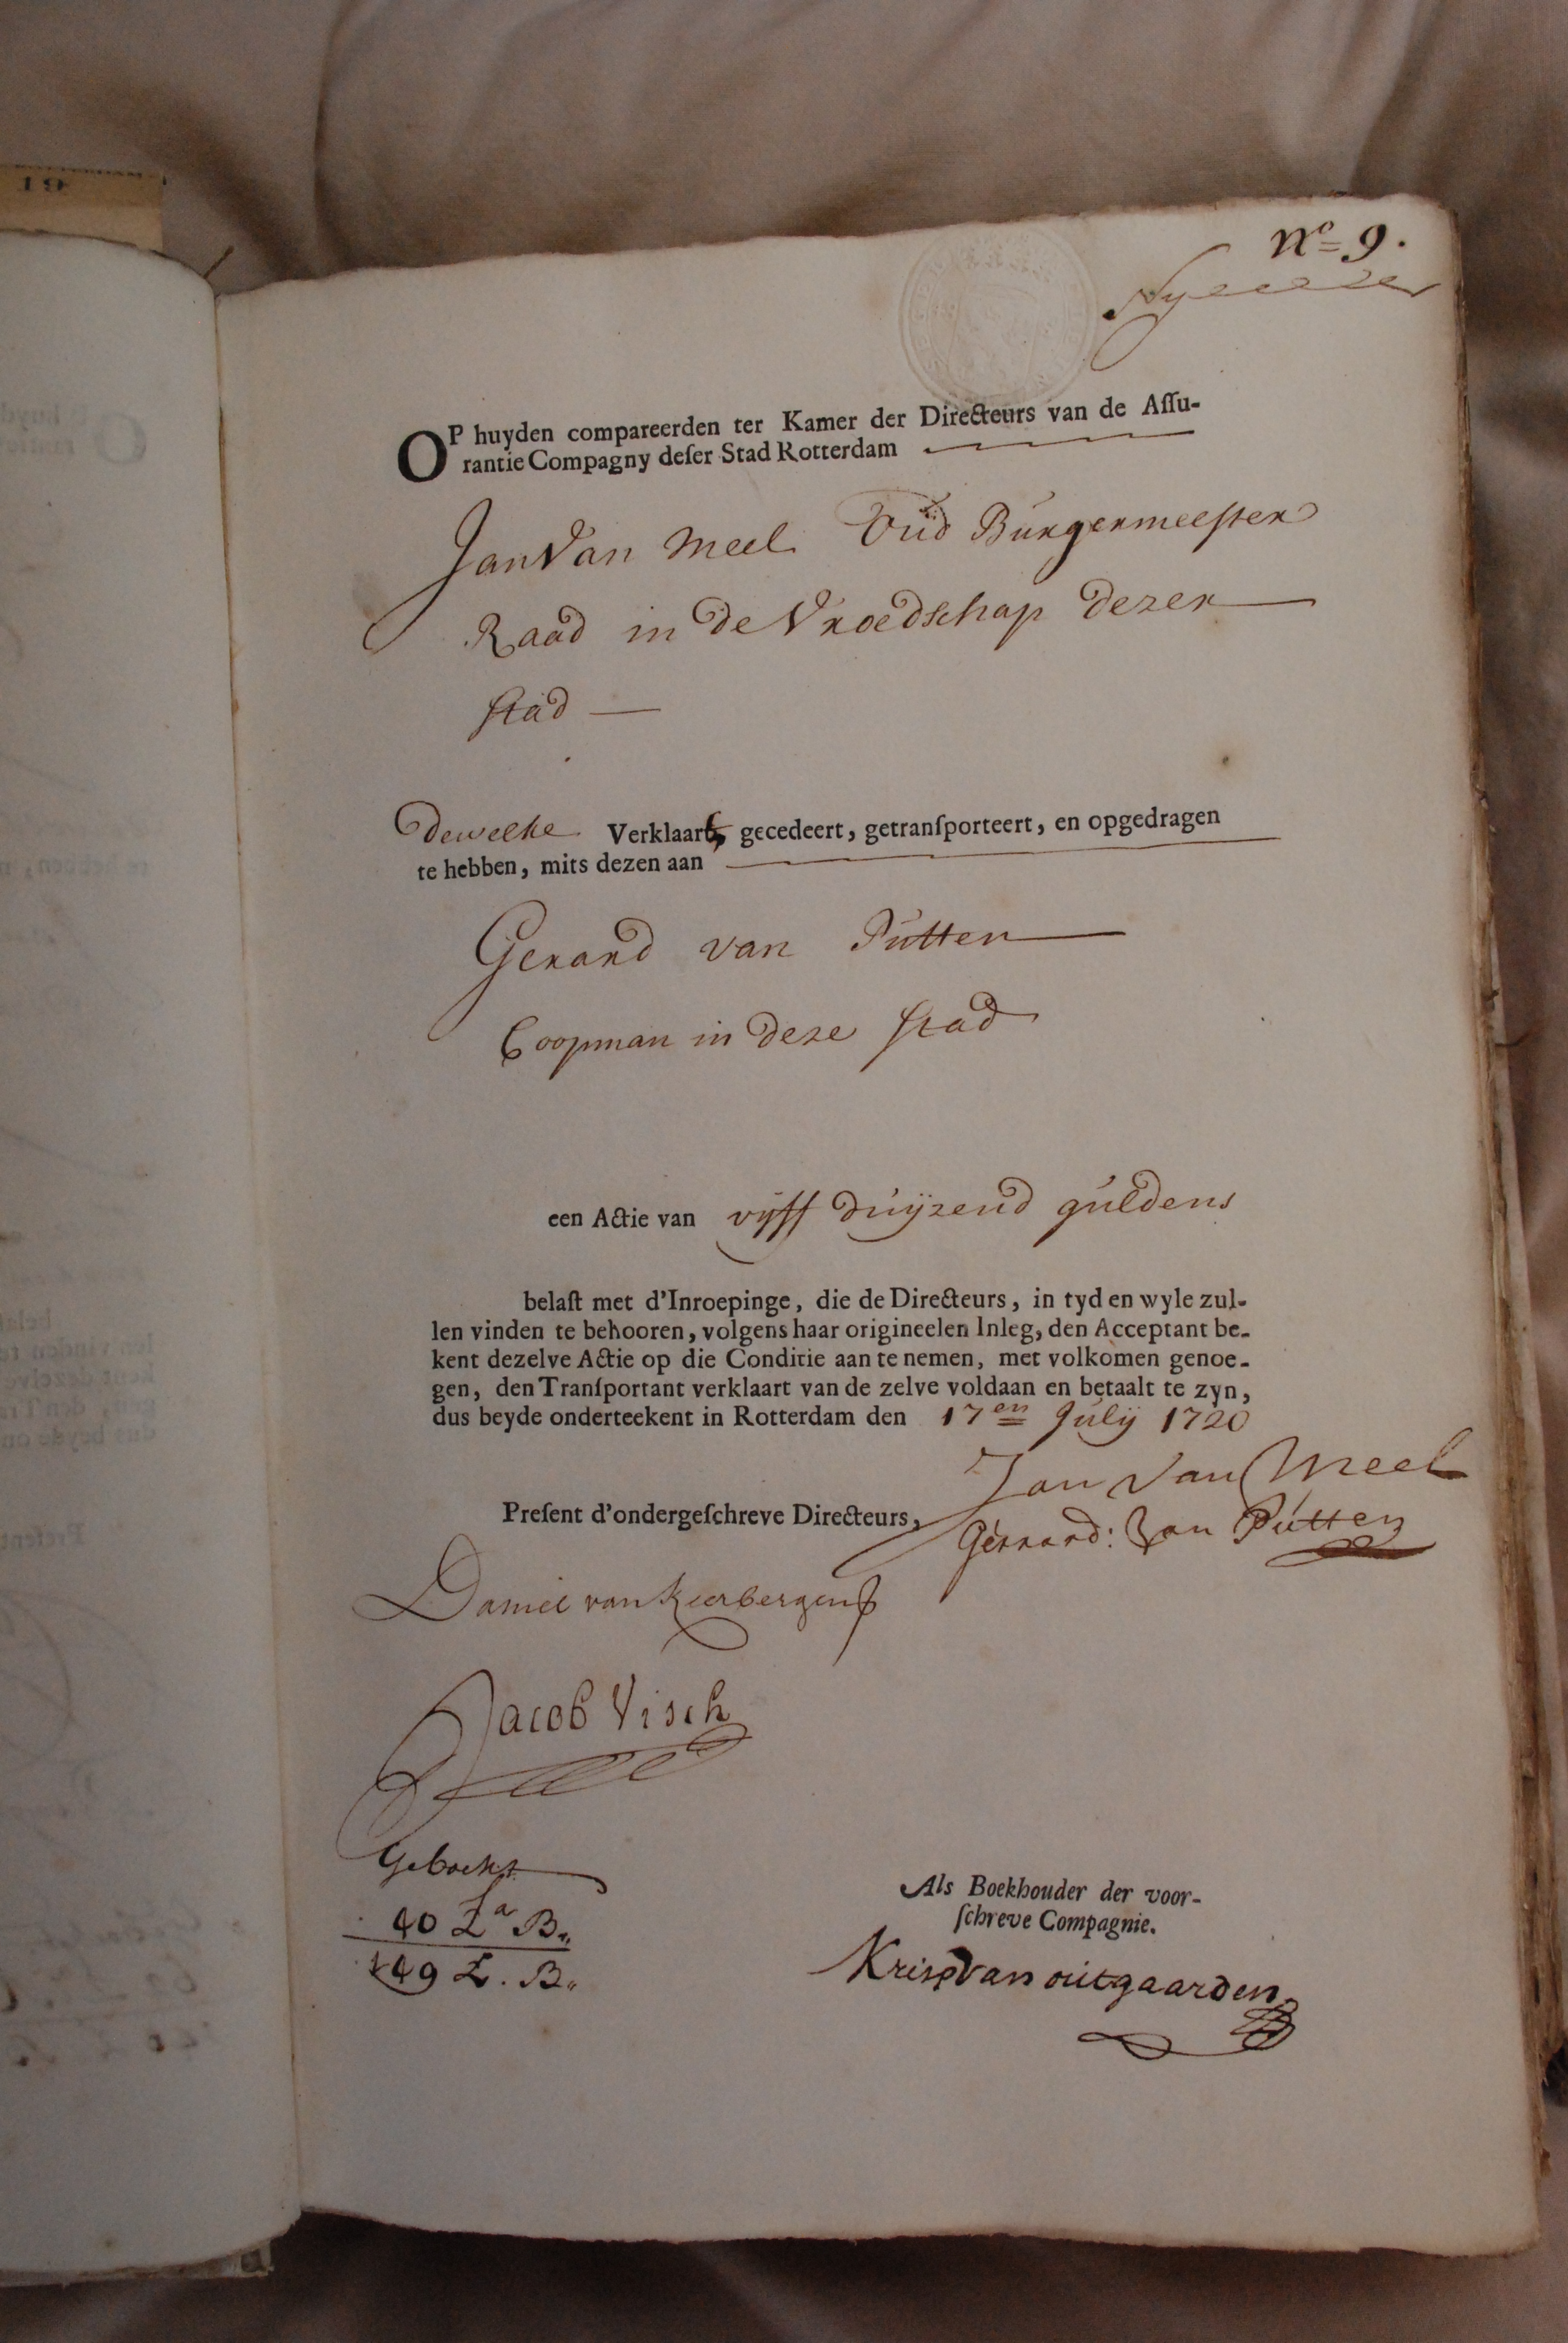 19
No= 9.
OP huyden compareerden ter Kamer der Directeurs van de Aſſu-
rantie Compagny deſer Stad Rotterdam
Jan Van Meel Oud Burgermeester
Raad in de Vroedschap dezer
stad
Dewelke Verklaart, gecedeert, getranſporteert, en opgedragen
te hebben, mits dezen aan
Gerard van Putten
Coopman in deze stad
een Actie van vyff duyzend guldens
belaſt met d'Inroepinge, die de Directeurs, in tyd en wyle zul-
len vinden te behooren, volgens haar origineelen Inleg, den Acceptant be-
kent dezelve Actie op die Conditie aan te nemen, met volkomen genoe-
gen, den Tranſportant verklaart van de zelve voldaan en betaalt te zyn,
dus beyde onderteekent in Rotterdam den 17en July 1720
Jan Van Meel
Preſent d'ondergeſchreve Directeurs,
Gerrard: Van Putten
Daniel van
Jacob Visch
Geboekt
40 La B.
149 L. B.
Als Boekhouder der voor-
ſchreve Compagnie.
Krisp Van outgaarden